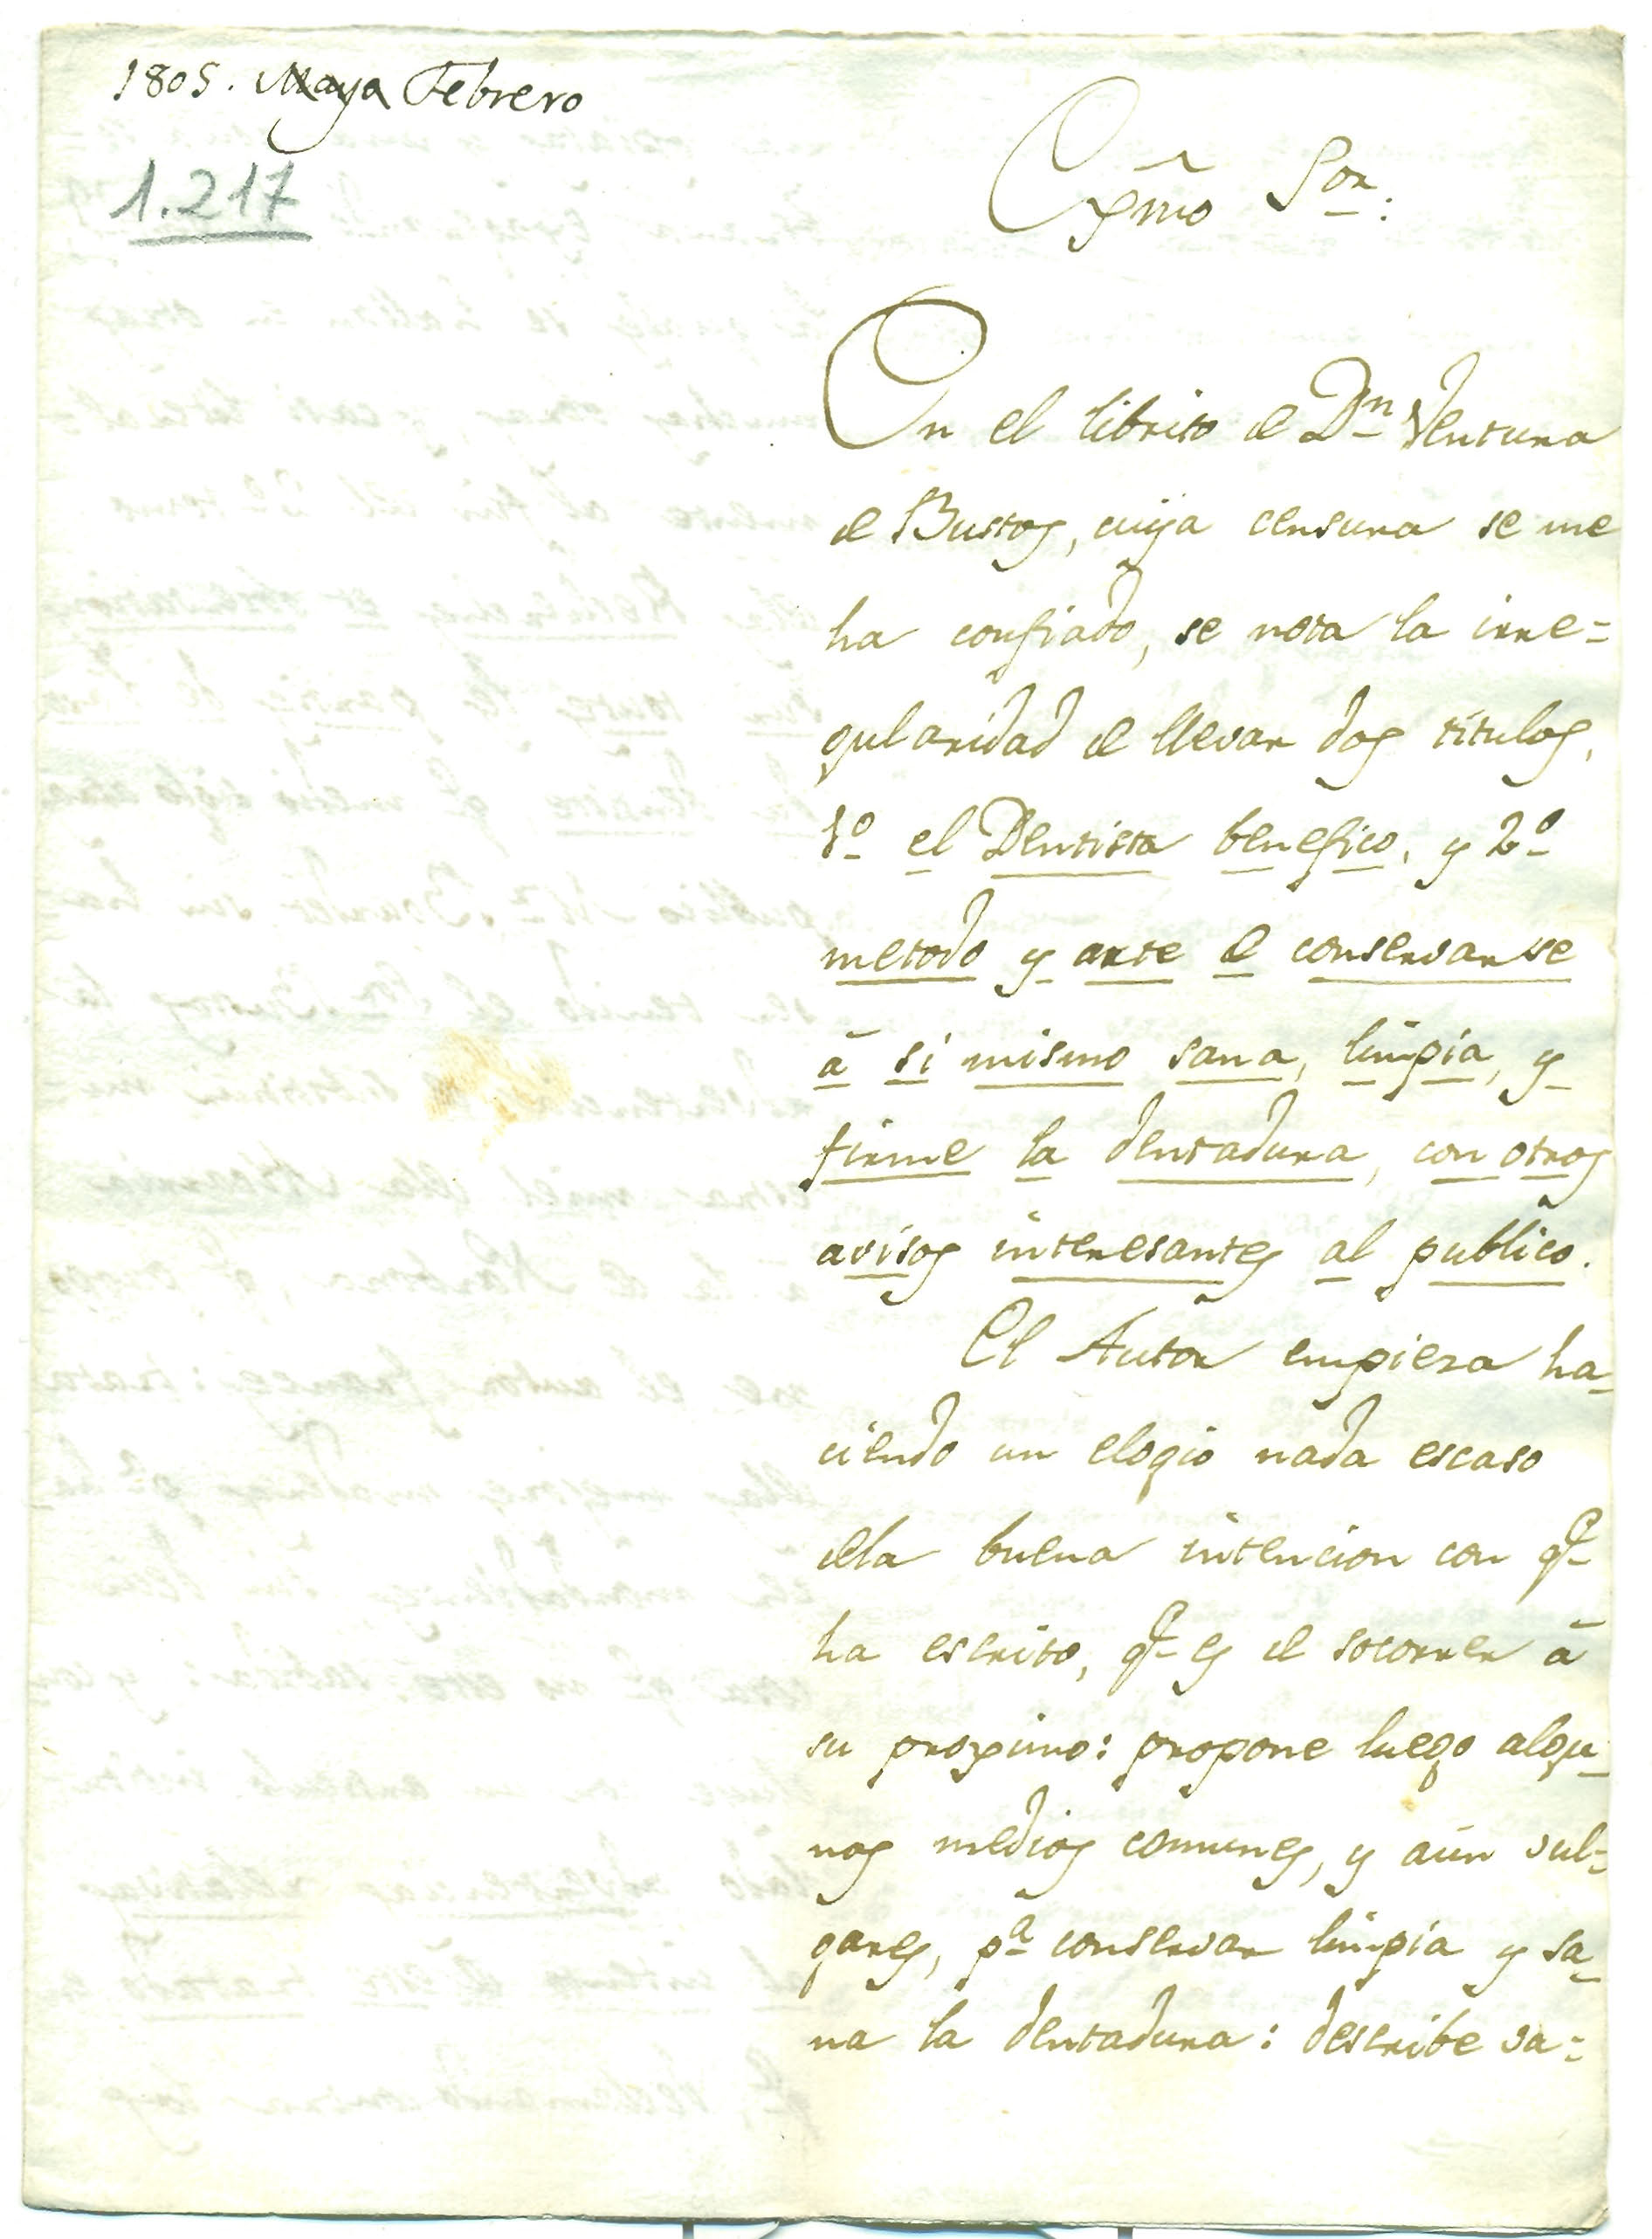 1805. Mayo Febrero
1.217
Exmo Sor.:
En el librito de Dn Ventura
de Bustos, cuya censura se me
ha confiado, se nota la irre=
gularidad de llevar dos titulos,
1º el Dentista benefico, y 2º
metodo y arte de conservarse
á si mismo sana, limpia, y
firme la dentadura, con otros
avisos interesantes al publico.
El Autor empieza ha-
ciendo un elogio nada escaso
dela buena intencion con qe
ha escrito, qe es de socorrer á
su proximo: propone luego algu-
nos medios comunes, y aún vul=
gares, pa conservar limpia y sa-
na la dentadura: describe va=